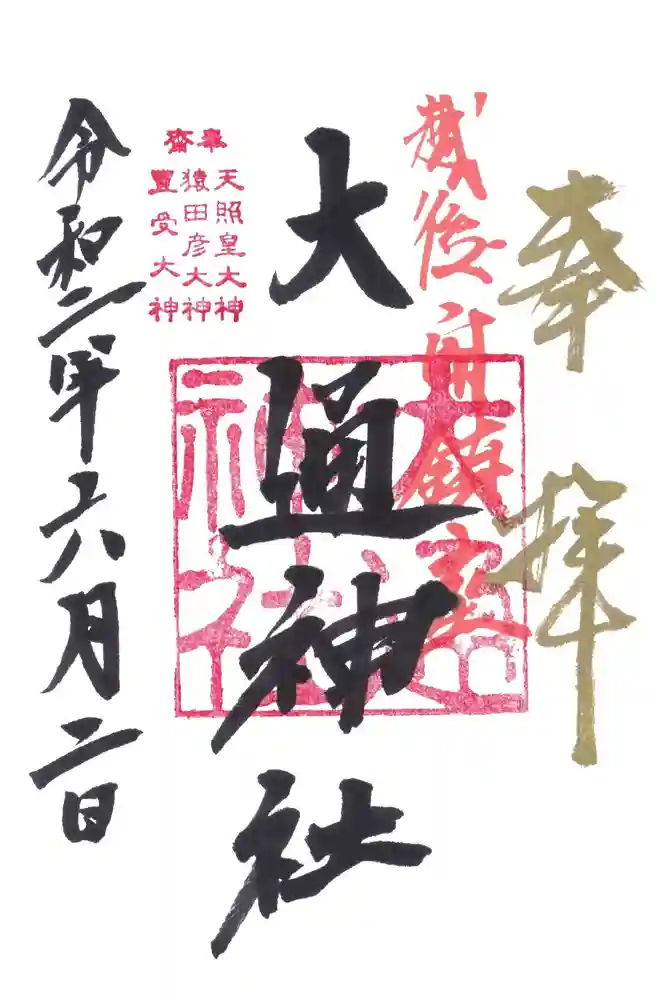 奉拝
越後府鎮座
大通神社
大通神社
奉齋
天照皇大神
猿田彦大神
豊受大神
令和二年六月二日